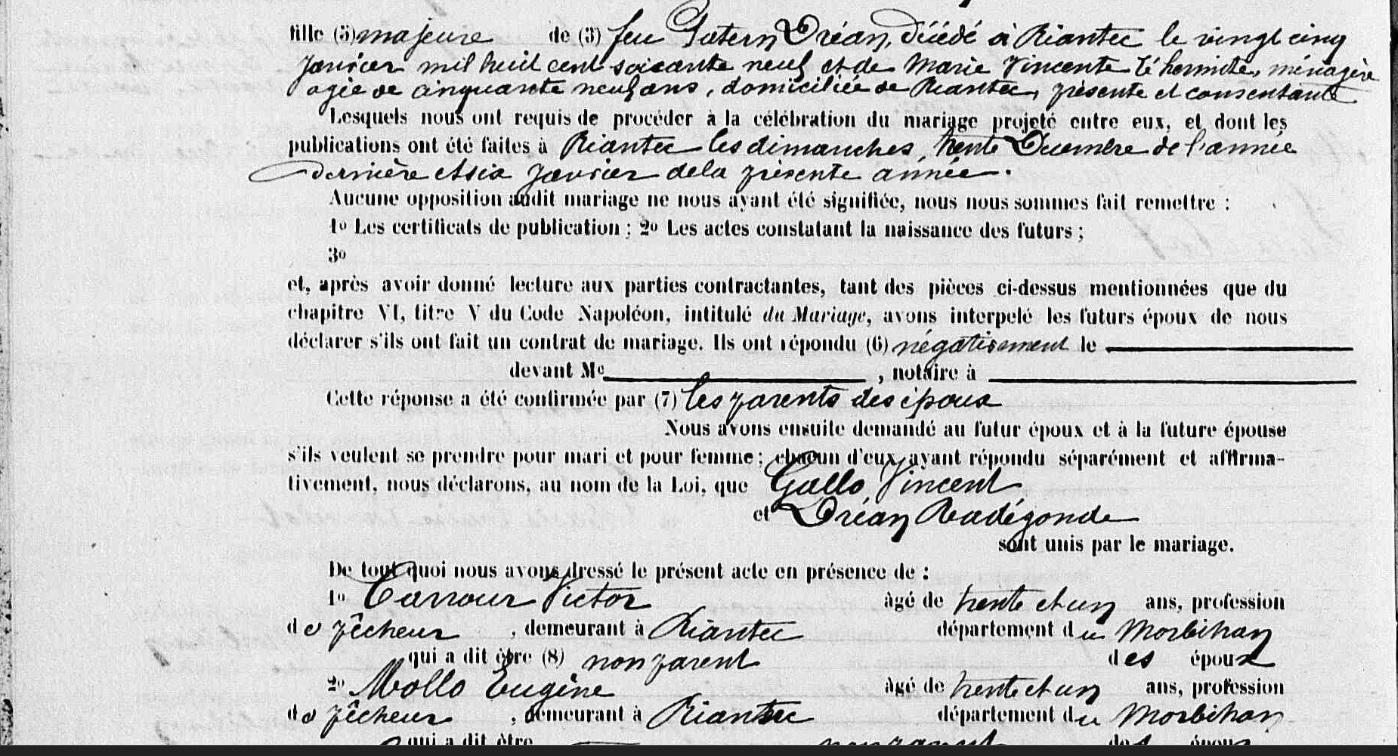 fille (5) majeure de (3) feu Patern Dréan, décédé à Riantec le vingt cinq
Janvier mil huit cent soixante neuf et de Marie Vincente Lé hermite, ménagère
agée de cinquante neuf ans, domiciliée de Riantec, présente et consentante
Lesquels nous ont requis de procéder à la célébration du mariage projeté entre eux, et dont les
publications ont été faites à Riantec les dimanches, trente Décembre de l'année
dernière et six Janvier de la présente année.
Aucune opposition audit mariage ne nous ayant été signifiée, nous nous sommes fait remettre :
1o Les certificats de publication ; 2o Les actes constatant la naissance des futurs ;
3o
et, après avoir donné lecture aux parties contractantes, tant des pièces ci-dessus mentionnées que du
chapitre VI, titre V du Code Napoléon, intitulé du Mariage, avons interpelé les futurs époux de nous
déclarer s'ils ont fait un contrat de mariage. Ils ont répondu (6) négativement le
devant Me , notaire à
Cette réponse a été confirmée par (7) les parents des époux
Nous avons ensuite demandé au futur époux et à la future épouse
s'ils veulent se prendre pour mari et pour femme ; chacun d'eux ayant répondu séparément et affirma-
tivement, nous déclarons, au nom de la Loi, que Gallo, Vincent
et Dréan Radégonde
sont unis par le mariage.
De tout quoi nous avons dressé le présent acte en présence de :
1o Carrour Victor âgé de trente et un ans, profession
de pêcheur , demeurant à Riantec département du Morbihan
qui a dit être (8) non parent des époux
2o Mollo Eugène âgé de trente et un ans, profession
de pêcheur , demeurant à Riantec département du Morbihan
qui a dit être non parent des époux